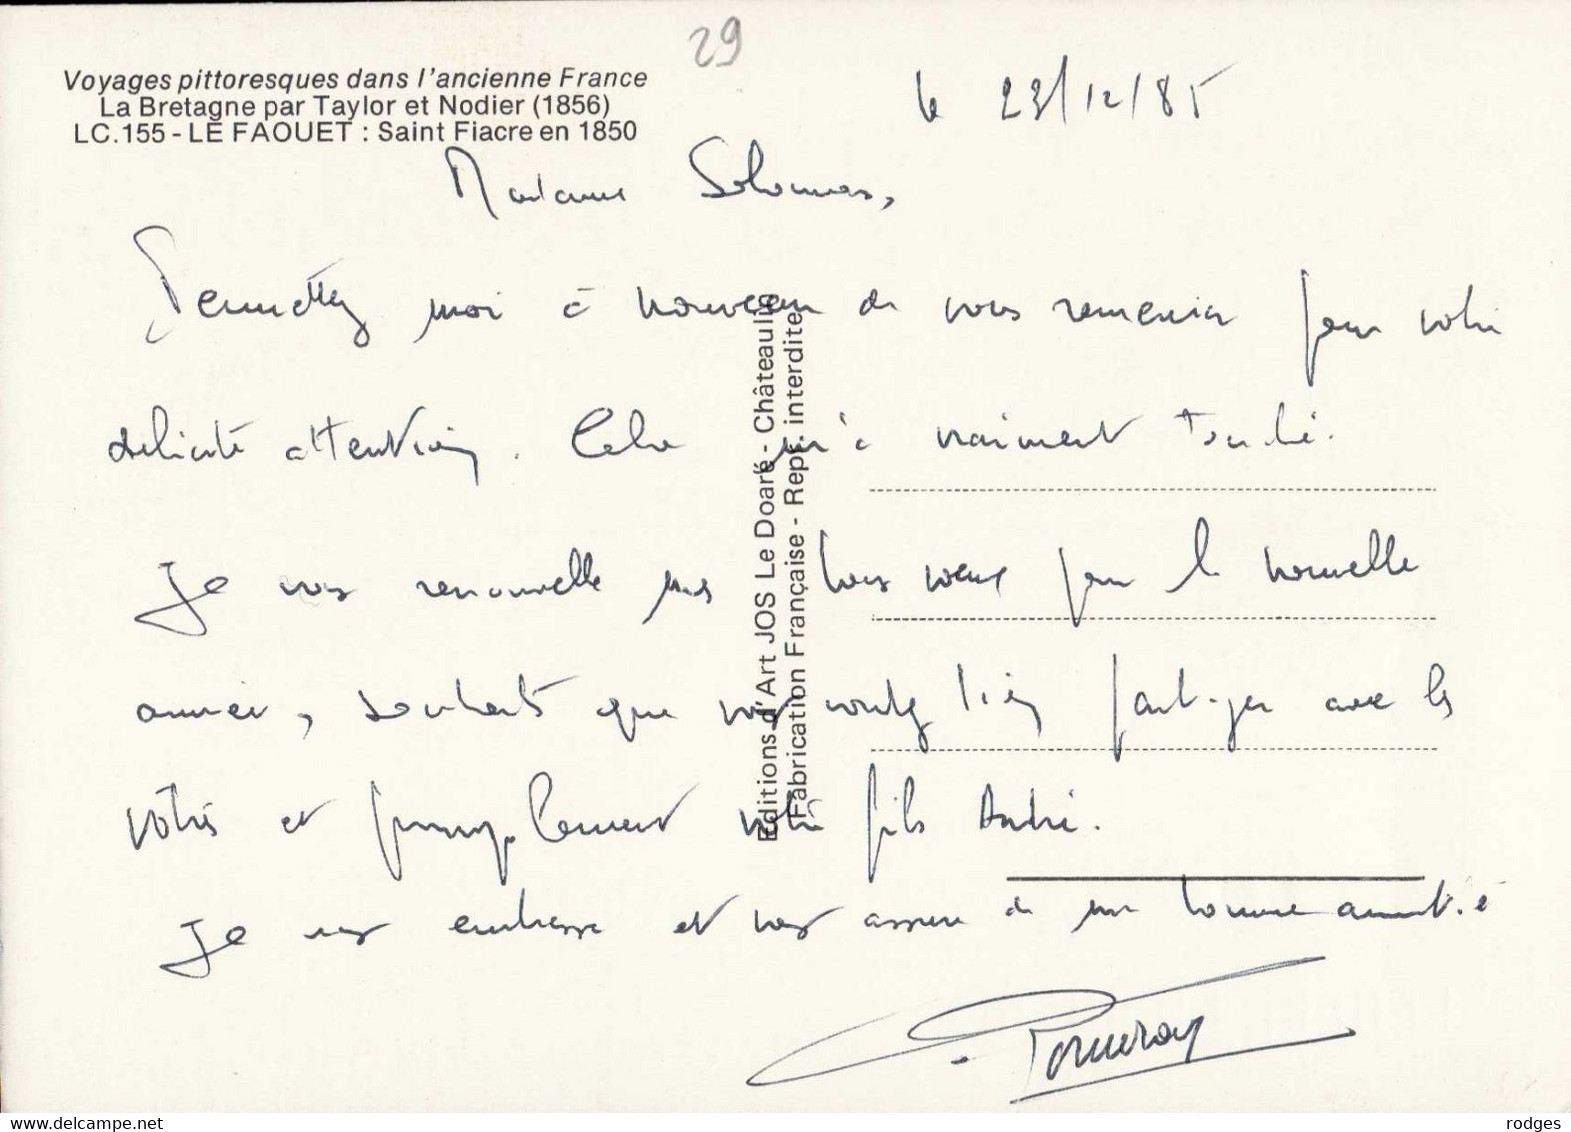 29
Voyages pittoresques dans l'ancienne France
La Bretagne par Taylor et Nodier (1856)
LC.155 - LE FAOUET : Saint Fiacre en 1850
le 23/12/85
Madame
Permettez moi à nouveau de vous remercier pour votre
délicate attention. Cela m'a vraiment touché.
Je vous renouvelle mes bons voeux pour la nouvelle
année, souhaits que vous voudrez bien partager avec les
vôtres et votre fils André.
Je vous embrasse et vous assure de ma bonne amitié
Editions d'Art JOS Le Doaré - Châteaulin
Fabrication Française - Repr. interdite
rodges